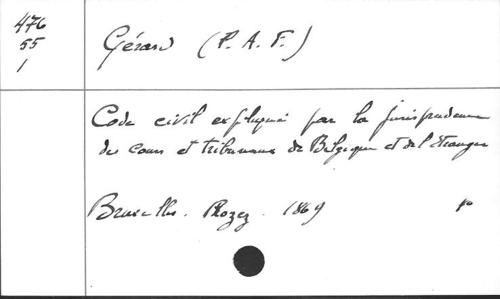 476
55
1
Gérard (P. A. F.)
Code civil expliqué par la jurisprudence
des cours et tribunaux de Belgique et de l'étranger
Bruxelles. Rozez. 1869